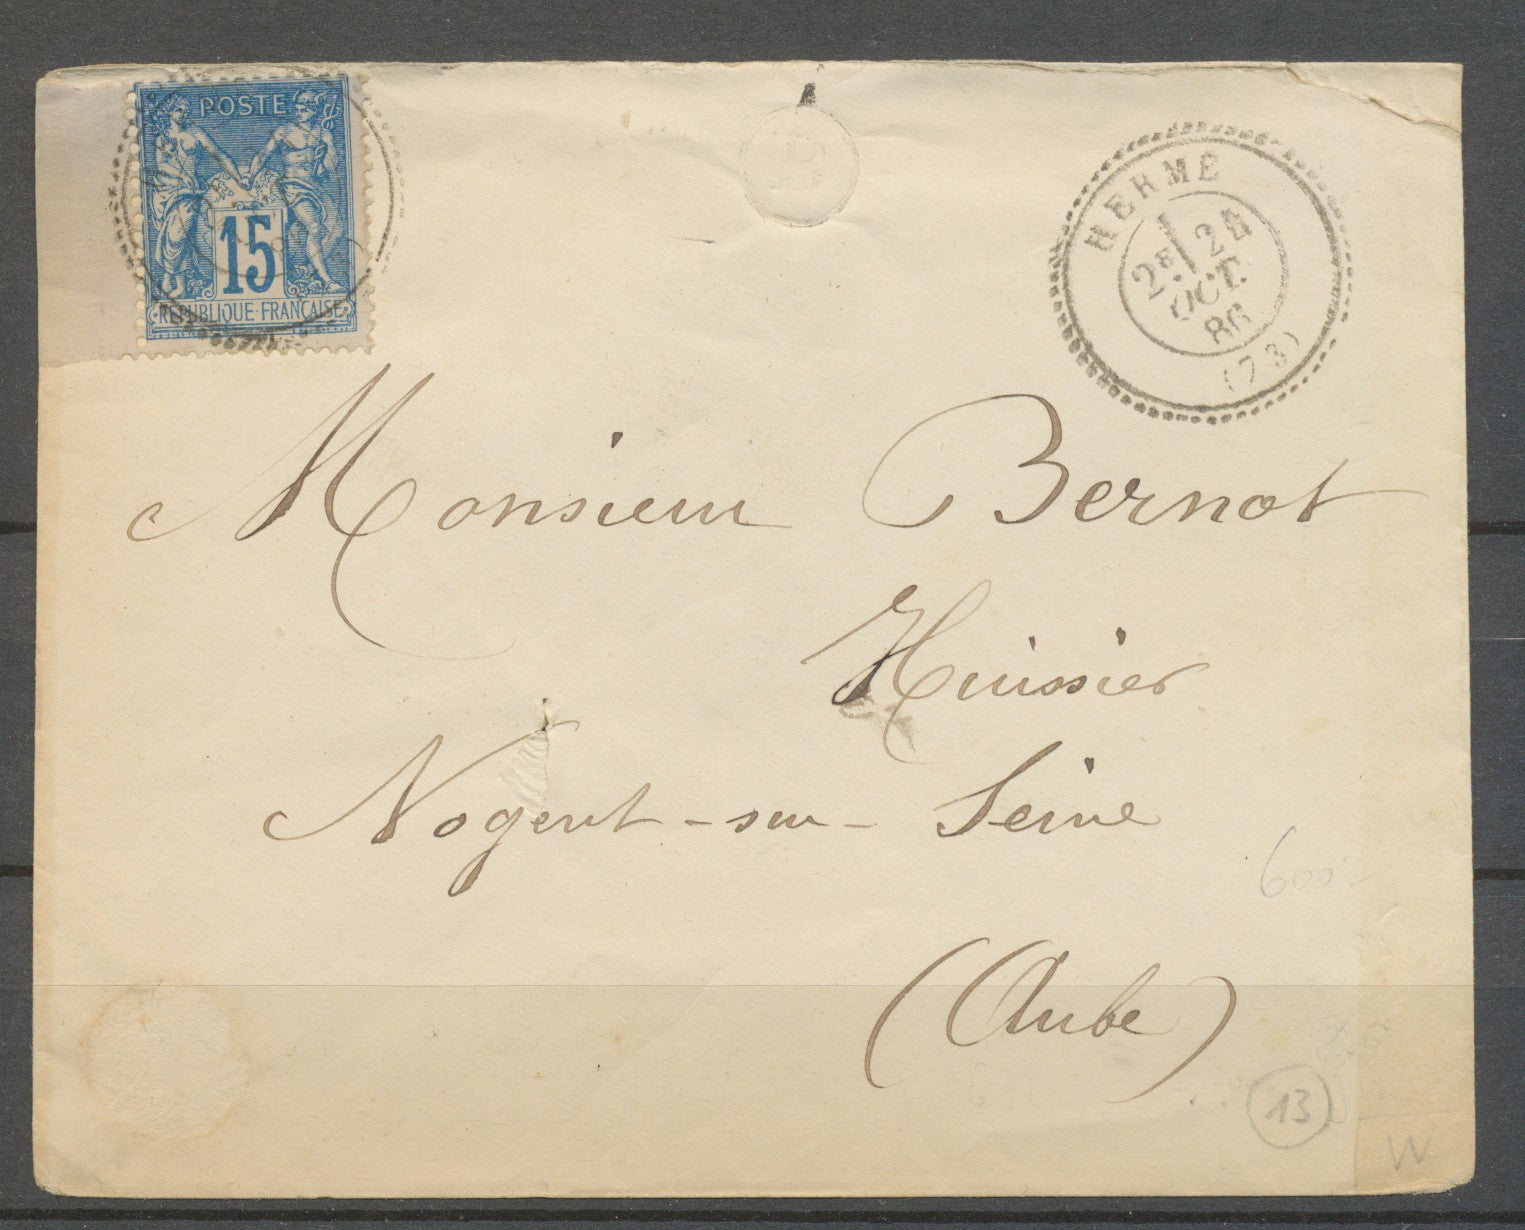 POSTE
15
RÉPUBLIQUE FRANÇAISE
HERMÉ
2E 24
OCT.
86
(73)
Monsieur Bernot
Huissier
Nogent-sur-Seine
(Aube)
600-
13
W